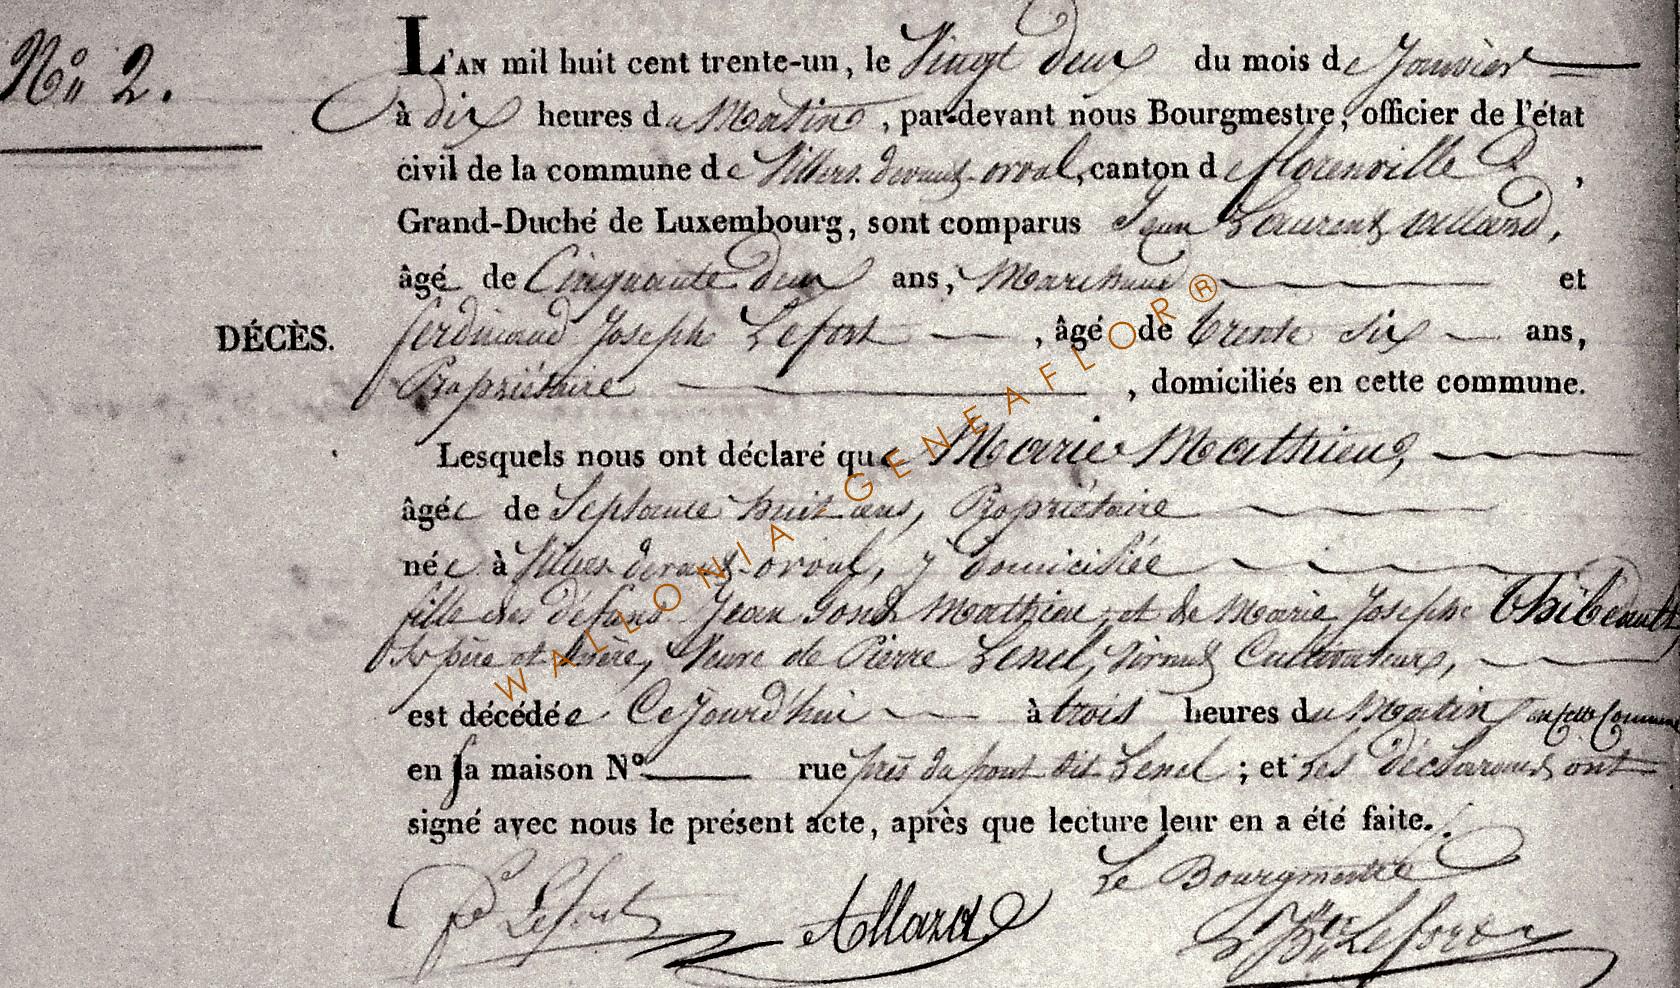 Nº 2.
L'AN mil huit cent trente-un, le Vingt deux du mois de Janvier
à dix heures du Matin, par-devant nous Bourgmestre, officier de l'état
civil de la commune de Villers devant-orval, canton de florenville,
Grand-Duché de Luxembourg, sont comparus Jean Laurent allard,
âgé de Cinquante deux ans, Marchand et
DÉCÈS.
ferdinand Joseph Lefort, âgé de trente six ans,
Propriétaire, domiciliés en cette commune.
Lesquels nous ont déclaré que Marie Mathieu,
âgée de Septante huit ans, Propriétaire
née à Villers devant-orval, y domiciliée
fille des défunts Jean Mathieu, et de Marie Josephe Thibeault
Ses père et Mère, Veuve de Pierre Lenel, vivant Cultivateurs,
est décédée Cejourd'hui à trois heures du Matin en Cette Commune
en sa maison Nº rue près du pont dit Lenel ; et Les déclarants ont
signé avec nous le présent acte, après que lecture leur en a été faite.
Le Bourgmestre
Lefort Allard
WALLONIA GENEAFLOR®